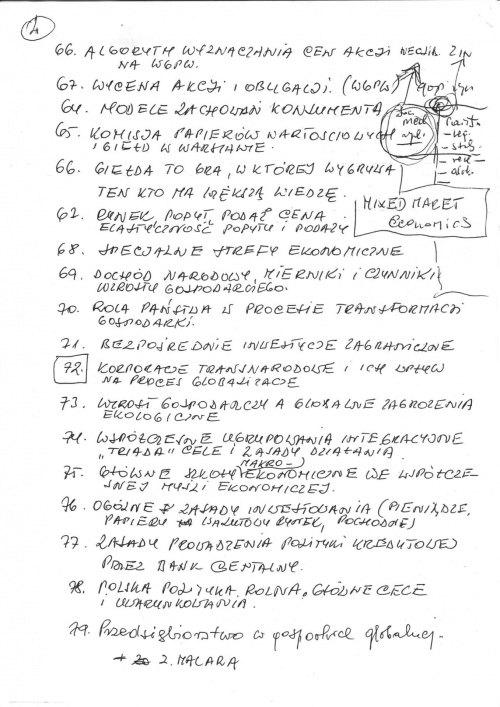 2
66. ALGORYTM WYZNACZANIA CEN AKCJI
NA WGPW.
67. WYCENA AKCJI I OBLIGACJI. (WGPW)
64. MODELE ZACHOWAŃ KONSUMENTA
65. KOMISJA PAPIERÓW WARTOŚCIOWYCH
I GIEŁD W WARSZAWIE.
66. GIEŁDA TO GRA, W KTÓREJ WYGRYWA
TEN KTO MA WIĘKSZĄ WIEDZĘ.
MIXED MARET
economics
62. RYNEK, POPYT, PODAŻ CENA
ELASTYCZNOŚĆ POPYTU I PODAŻY
68. SPECJALNE STREFY EKONOMICZNE
69. DOCHÓD NARODOWY, MIERNIKI I CZYNNIKI
WZROSTU GOSPODARCZEGO.
70. ROLA PAŃSTWA W PROCESIE TRANSFORMACJI
GOSPODARKI.
71. BEZPOŚREDNIE INWESTYCJE ZAGRANICZNE
72. KORPORACJE TRANSNARODOWE I ICH WPŁYW
NA PROCES GLOBALIZACJI
73. WZROST GOSPODARCZY A GLOBALNE ZAGROŻENIA
EKOLOGICZNE
74. WSPÓŁCZESNE UGRUPOWANIA INTEGRACYJNE
"TRIADA" CELE I ZASADY DZIAŁANIA
MAKRO-
75. GŁÓWNE SZKOŁY EKONOMICZNE WE WSPÓŁCZE-
SNEJ MYŚLI EKONOMICZEJ.
76. OGÓLNE ZASADY INWESTOWANIA (PIENIĄDZE,
PAPIERY WALUTOWY RYNEK, POCHODNE)
77. ZASADY PROWADZENIA POLITYKI KREDYTOWEJ
PRZEZ BANK CENTALNY.
78. POLSKA POLITYKA ROLNA. GŁÓWNE CELE
I UWARUNKOWANIA.
79. Przedsiębiorstwo w gospodarce globalnej.
+ 2. MALARA